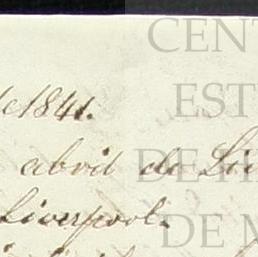 de 1841.
abril de Li
Liverpool.
CENT
EST
DE H
DE M